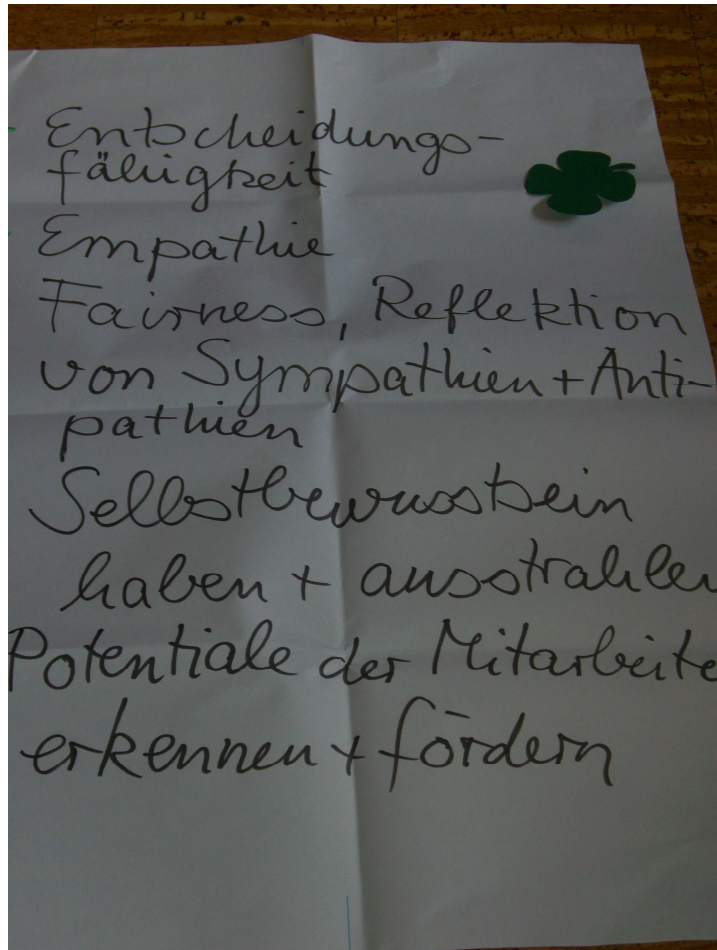 Entscheidungs-
fähigkeit
Empathie
Fairness, Reflektion
von Sympathien + Anti-
pathien
Selbstbewusstsein
haben + ausstrahlen
Potentiale der Mitarbeite
erkennen + fördern